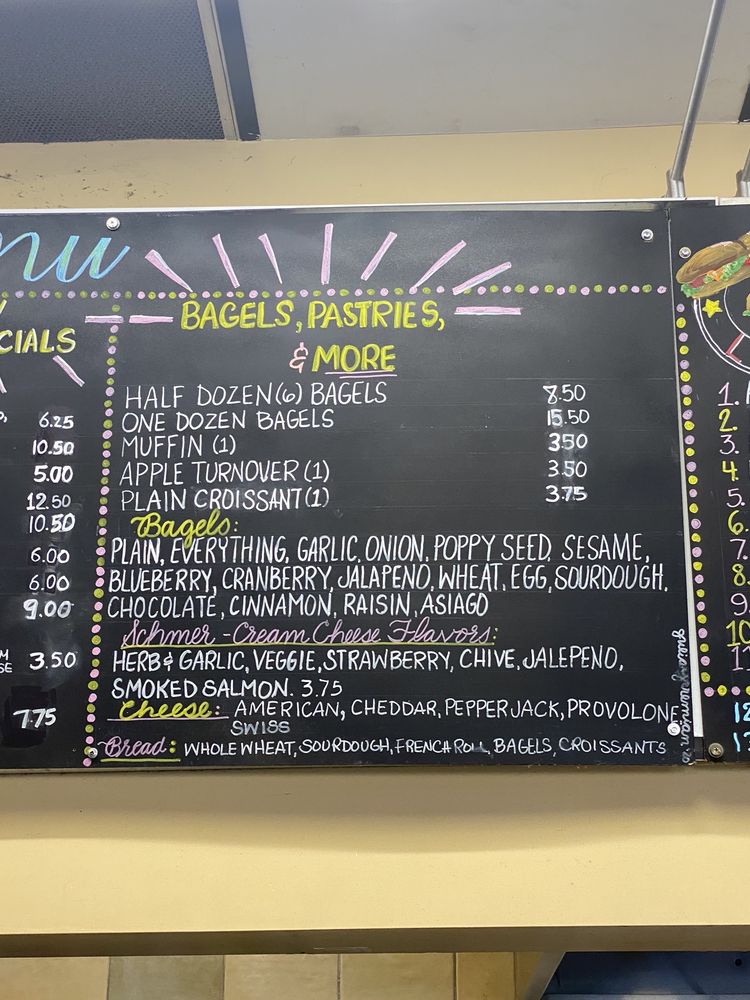 nu
CIALS
6.25
10.50
5.00
12.50
10.50
6.00
6.00
9.00
3.50
7.75
BAGELS, PASTRIES,
& MORE
HALF DOZEN(6) BAGELS 8.50
ONE DOZEN BAGELS 15.50
MUFFIN (1) 3.50
APPLE TURNOVER (1) 3.50
PLAIN CROISSANT (1) 3.75
Bagels:
PLAIN, EVERYTHING, GARLIC, ONION, POPPY SEED, SESAME,
BLUEBERRY, CRANBERRY, JALAPENO, WHEAT, EGG, SOURDOUGH,
CHOCOLATE, CINNAMON, RAISIN, ASIAGO
Schmer - Cream Cheese Flavors:
HERB & GARLIC, VEGGIE, STRAWBERRY, CHIVE, JALEPENO,
SMOKED SALMON. 3.75
Cheese: AMERICAN, CHEDDAR, PEPPER JACK, PROVOLONE
SWISS
Bread: WHOLE WHEAT, SOURDOUGH, FRENCH ROLL, BAGELS, CROISSANTS
1.
2.
3.
4.
5.
6.
7.
8.
9
10
11
12
13